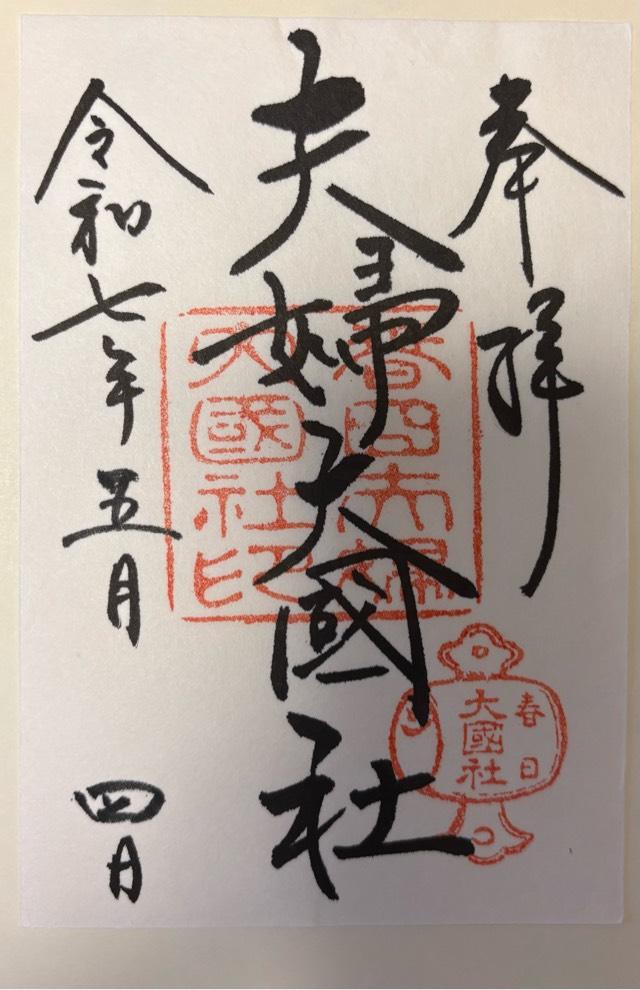 奉拝
夫婦大國社
令和七年五月四日
春日夫婦
大國社印
春日
大國社